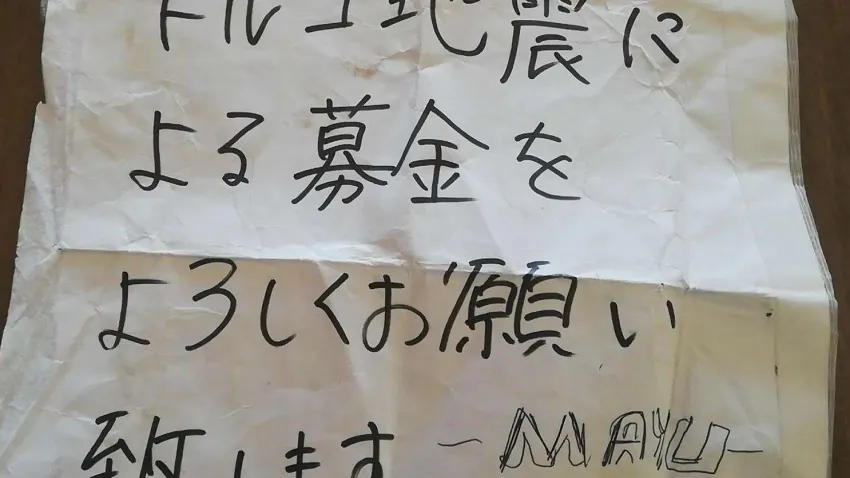 トルコ地震に
よる募金を
よろしくお願い
致します -MAYU-